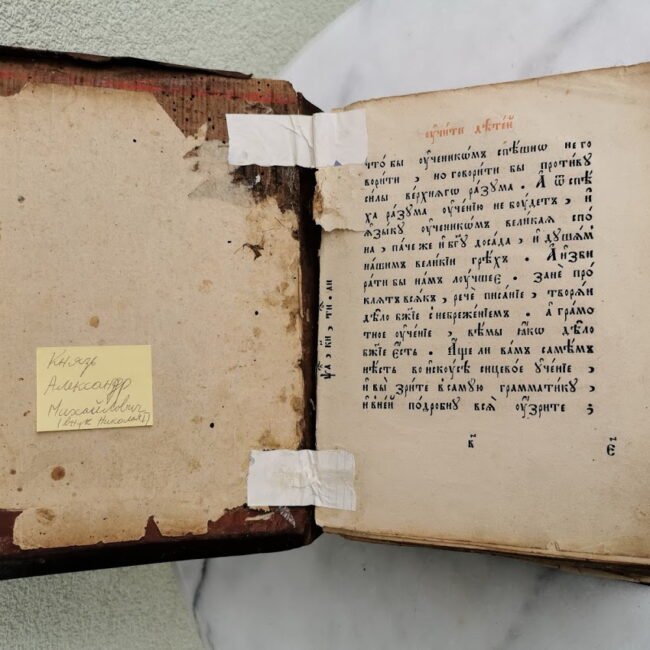 Князь
Александр
Михайлович
(внук Николая I)
оу҆чи́ти дѣте́й
что́ бы оу҆ченикѡ́мъ спѣ́шнѡ не го
вори́ти , но говори́ти бы проти́ву
си́лы ве́рхнѧгѡ ра́зума . А҆ ѿ спѣ́
ха ра́зума оу҆че́нїю не бꙋ́детъ , и҆
ѧ҆зы́ку оу҆ченикѡ́мъ вели́каѧ спо́
на , па́че же и҆ бг҃ꙋ доса́да , и҆ дꙋша́мъ
на́шимъ вели́кїи грѣ́хъ . А҆ и҆зби
ра́ти бы на́мъ лоу́чшее . Занѐ про́
клѧтъ всѧ́къ , речѐ писа́нїе , творѧ́и
дѣ́ло бж҃їе с небреже́нїемъ . а҆ гра́мо
тное оу҆че́нїе , вѣ́мы ꙗ҆́кѡ дѣ́ло
бж҃їе є҆́сть . А҆́ще ли ва́мъ самѣ́мъ
нѣ́сть во и҆скꙋ́сѣ сицево́е оу҆че́нїе ,
и҆ вы̀ зри́те в са́мую грамма́тику ,
и҆ в не́й подро́бну всѧ̀ оу҆́зрите ;
в҃
є҃